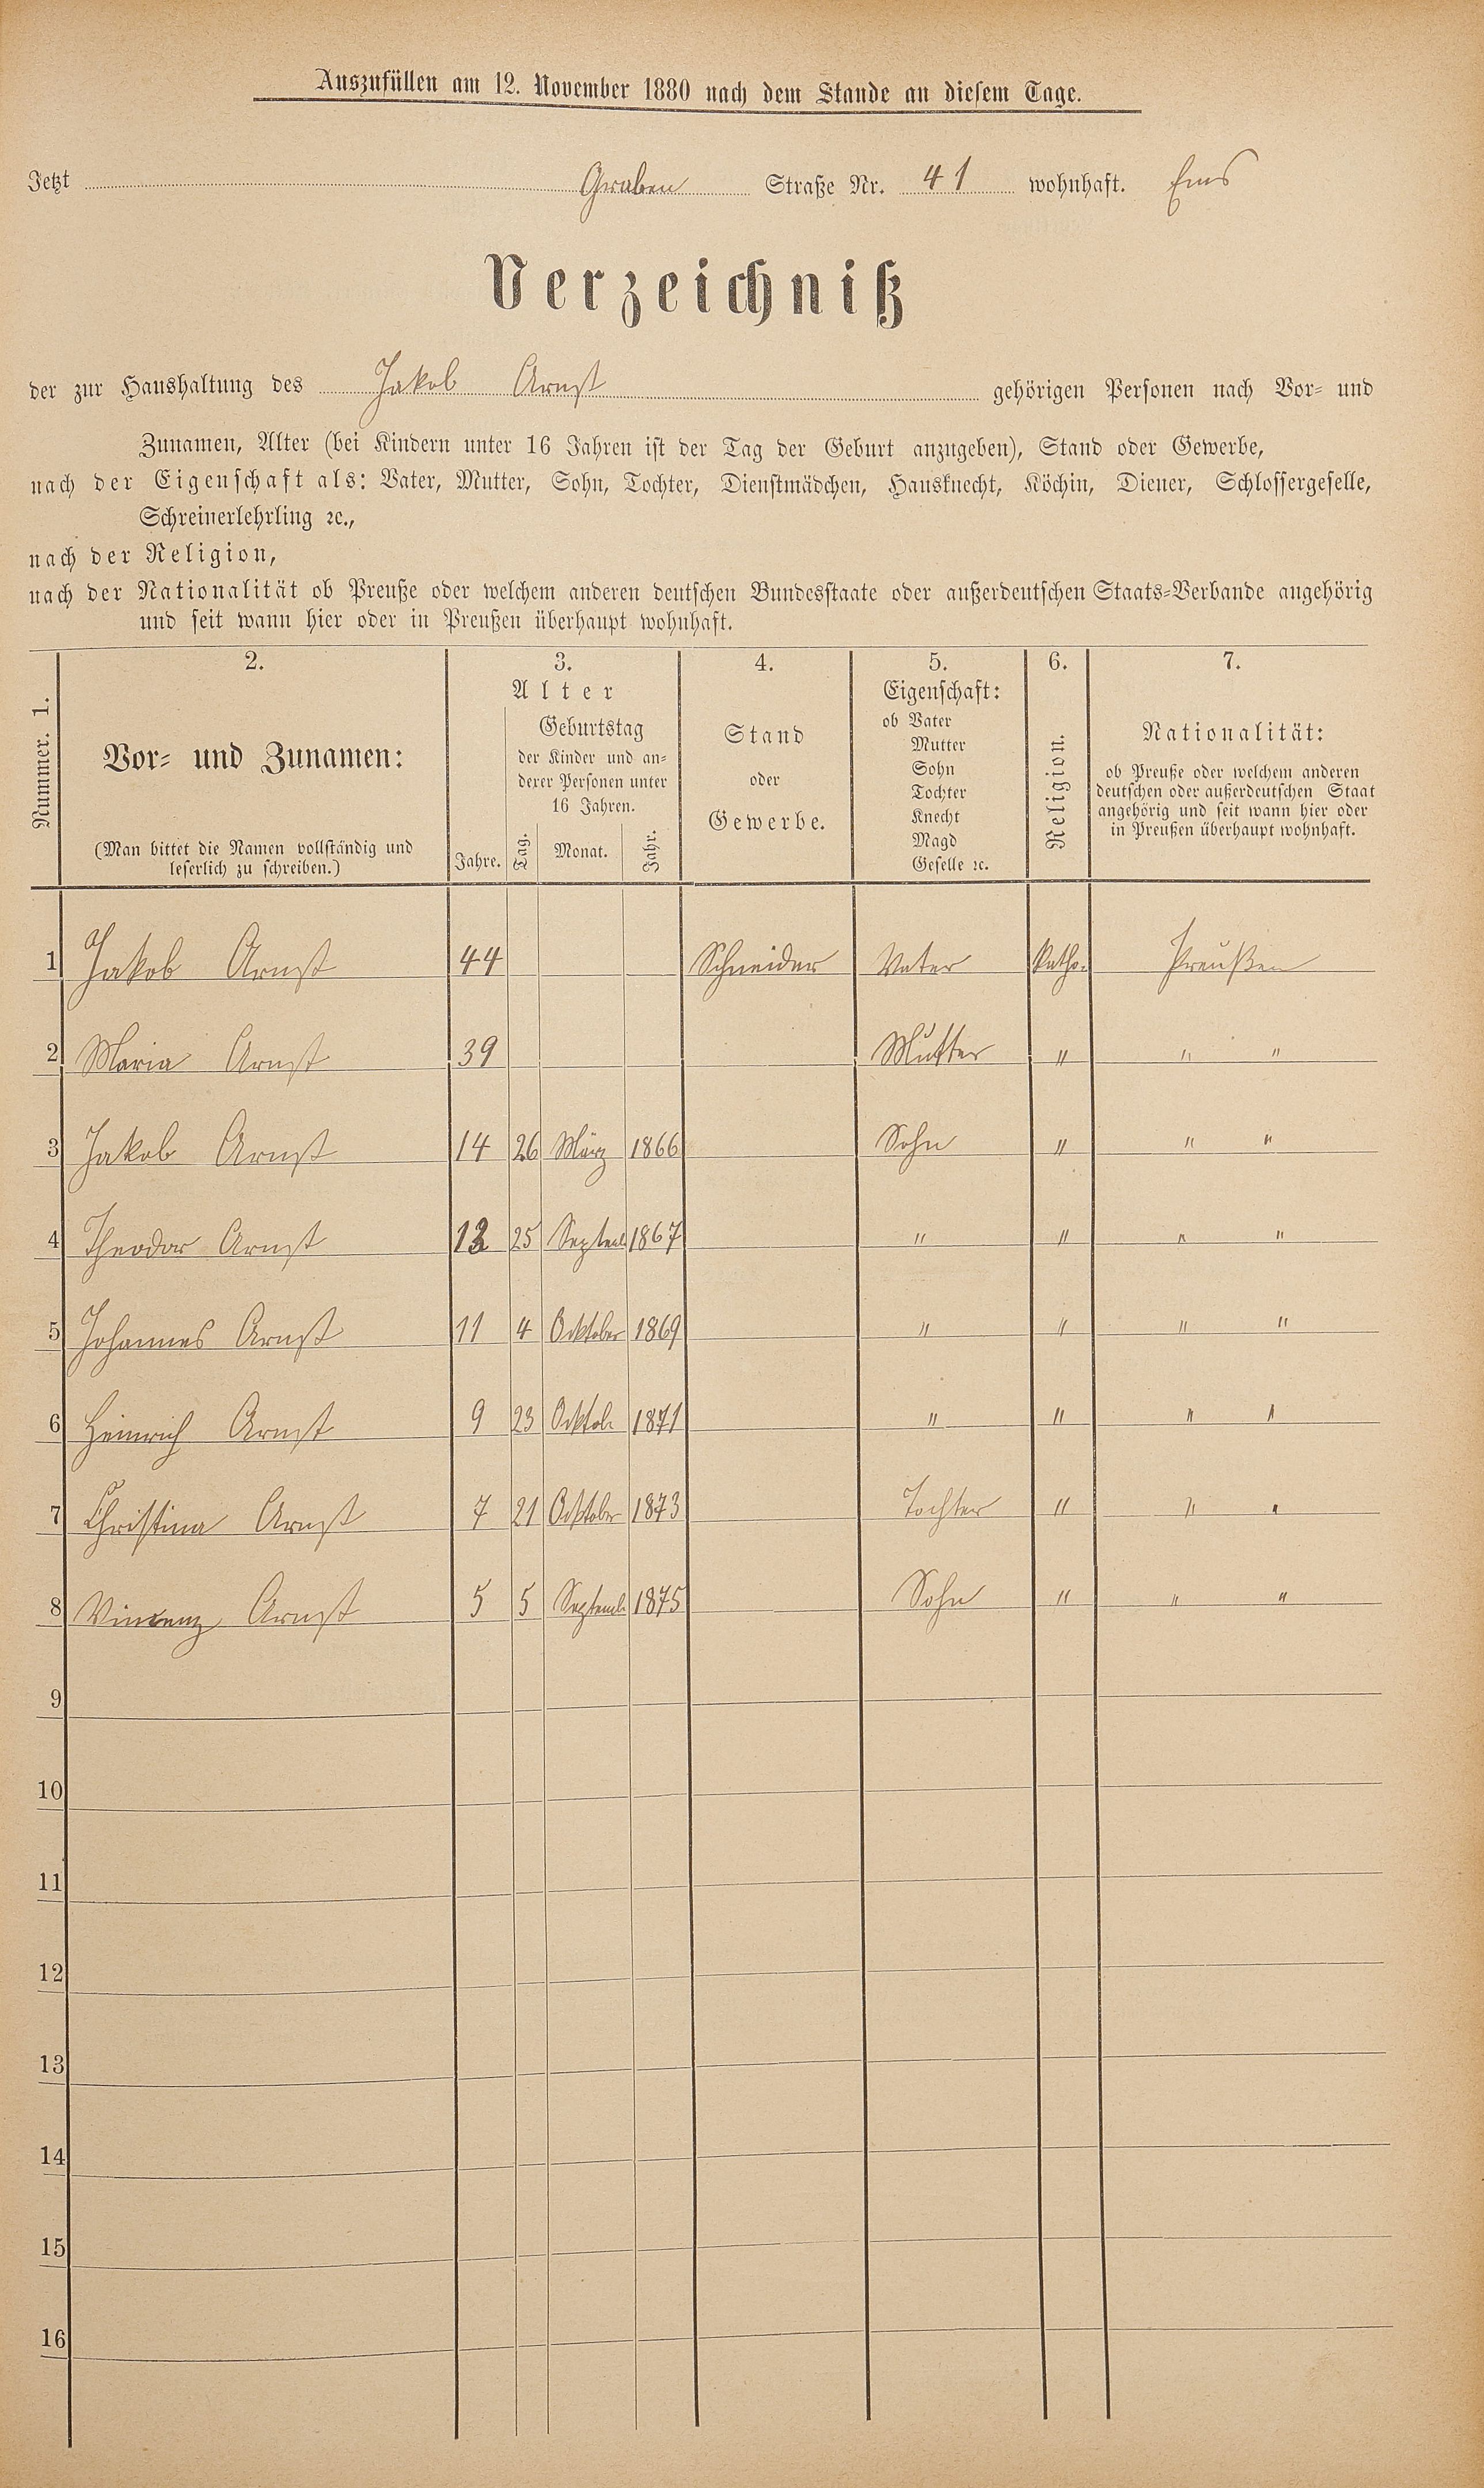 Auszufüllen am 12. November 1880 nach dem Stande an diesem Tage.
Jetzt Graben Straße Nr. 41 wohnhaft. Ems
Verzeichniß
der zur Haushaltung des Jakob Arnst gehörigen Personen nach Vor- und
Zunamen, Alter (bei Kindern unter 16 Jahren ist der Tag der Geburt anzugeben), Stand oder Gewerbe,
nach der Eigenschaft als: Vater, Mutter, Sohn, Tochter, Dienstmädchen, Hausknecht, Köchin, Diener, Schlossergeselle,
Schreinerlehrling ꝛc.,
nach der Religion,
nach der Nationalität ob Preuße oder welchem anderen deutschen Bundesstaate oder außerdeutschen Staats-Verbande angehörig
und seit wann hier oder in Preußen überhaupt wohnhaft.
Nummer. 1.
2.
Vor- und Zunamen:
(Man bittet die Namen vollständig und
leserlich zu schreiben.)
3.
Alter
Jahre.
Geburtstag
der Kinder und an-
derer Personen unter
16 Jahren.
Tag. Monat. Jahr.
4.
Stand
oder
Gewerbe.
5.
Eigenschaft:
ob Vater
Mutter
Sohn
Tochter
Knecht
Magd
Geselle ꝛc.
6.
Religion.
7.
Nationalität:
ob Preuße oder welchem anderen
deutschen oder außerdeutschen Staat
angehörig und seit wann hier oder
in Preußen überhaupt wohnhaft.
1 Jakob Arnst 44 Schneider Vater Katho. Preußen
2 Maria Arnst 39 Mutter " " "
3 Jakob Arnst 14 26 März 1866 Sohn " " "
4 Theodor Arnst 25 Septemb 1867 " " " "
5 Johannes Arnst 11 4 Ocktober 1869 " " " "
6 Heinrich Arnst 9 23 Ocktob. 1871 " " " "
7 Christina Arnst 7 21 Ocktober 1873 Tochter " " "
8 Vincenz Arnst 5 5 Septemb 1875 Sohn " " "
9
10
11
12
13
14
15
16